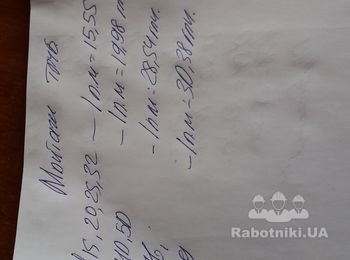 Монтаж труб
15,20,25,32 — 1п.м = 15,55
40,50 — 1п.м = 19,98
— 1п.м = 28,54 грн.
— 1п.м = 30,38 грн.
Rabotniki.UA